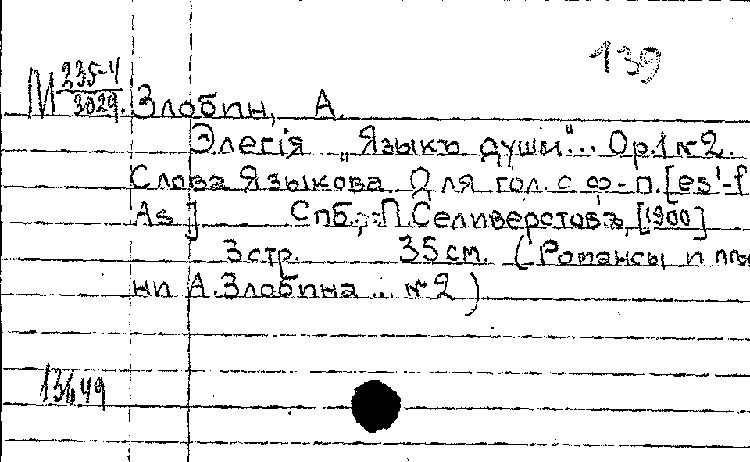 139
М 235-4
3029.
Злобин, А.
Элегія „Языкъ души"... Op.1 №2.
Слова Языкова Для гол. с ф-п. [es'-f
As] Спб., П. Селиверстовъ, [1900]
3 стр. 35 см. (Романсы и пѣс
ни А. Злобина... №2)
13649